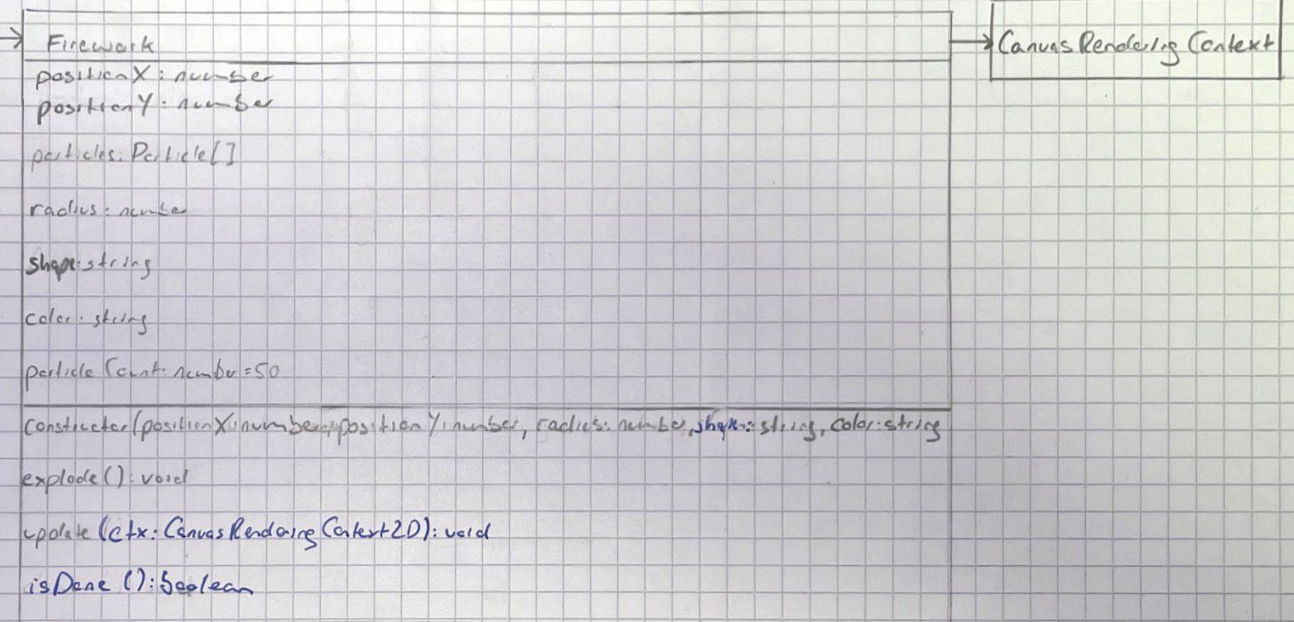 Firework
CanvasRenderingContext
positionX: number
positionY: number
particles: Particle[]
radius: number
shape: string
color: string
particleCount: number = 50
constructor(positionX: number, positionY: number, radius: number, shape: string, color: string
explode(): void
update(ctx: CanvasRenderingContext2D): void
isDone(): boolean